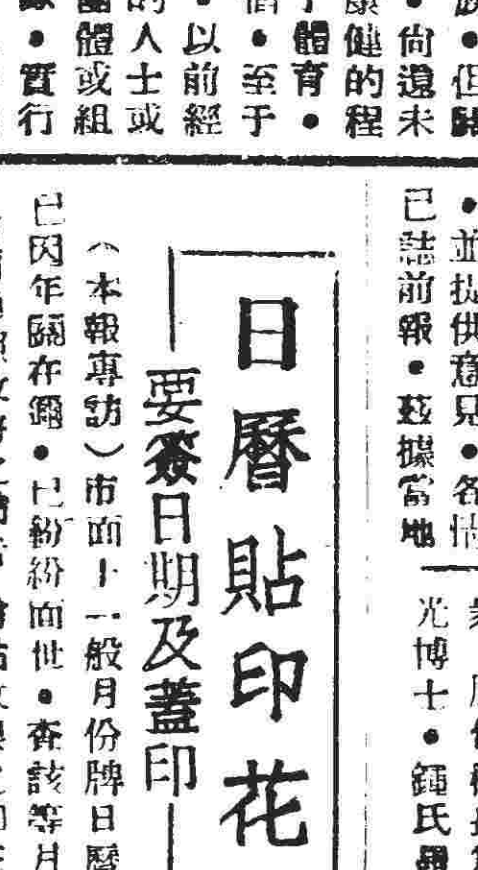 但
尚還未
康健的程
體育•
•至于
•以前經
的人士或
體或組
•實行
•並提供意見•各
已誌前報•茲據當地
光博士•鍾氏
日曆貼印花
要簽日期及蓋印
（本報專訪）市面上一般月份牌日曆
已因年關在邇•已紛紛面世•查該等月